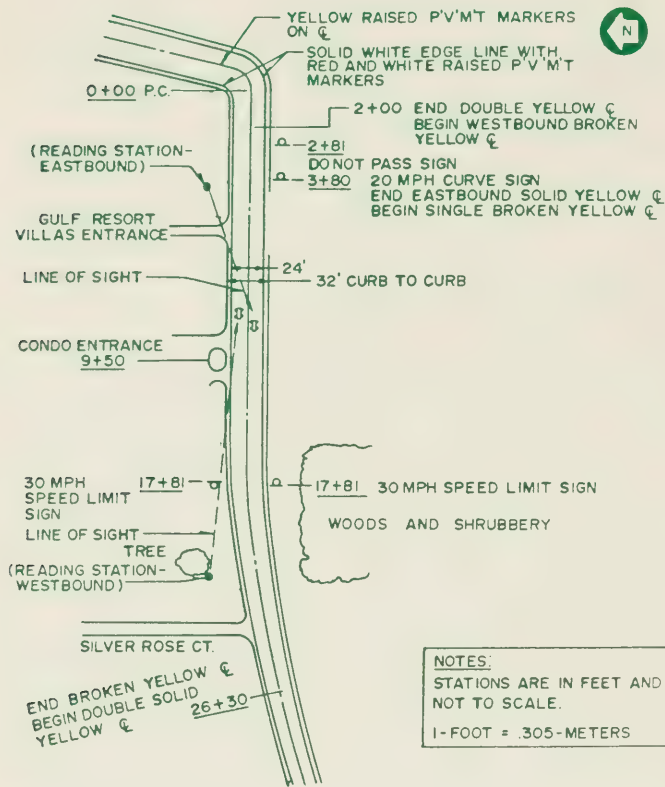 YELLOW RAISED P'V'M'T MARKERS
ON ℄
N
SOLID WHITE EDGE LINE WITH
RED AND WHITE RAISED P'V'M'T
MARKERS
0+00 P.C.
2+00 END DOUBLE YELLOW ℄
BEGIN WESTBOUND BROKEN
YELLOW ℄
(READING STATION-
EASTBOUND)
2+81
DO NOT PASS SIGN
3+80 20 MPH CURVE SIGN
END EASTBOUND SOLID YELLOW ℄
BEGIN SINGLE BROKEN YELLOW ℄
GULF RESORT
VILLAS ENTRANCE
LINE OF SIGHT
24'
32' CURB TO CURB
CONDO ENTRANCE
9+50
30 MPH 17+81
SPEED LIMIT
SIGN
17+81 30 MPH SPEED LIMIT SIGN
WOODS AND SHRUBBERY
LINE OF SIGHT
TREE
(READING STATION-
WESTBOUND)
SILVER ROSE CT.
END BROKEN YELLOW ℄
BEGIN DOUBLE SOLID
YELLOW ℄
26+30
NOTES:
STATIONS ARE IN FEET AND
NOT TO SCALE.
1-FOOT = .305-METERS